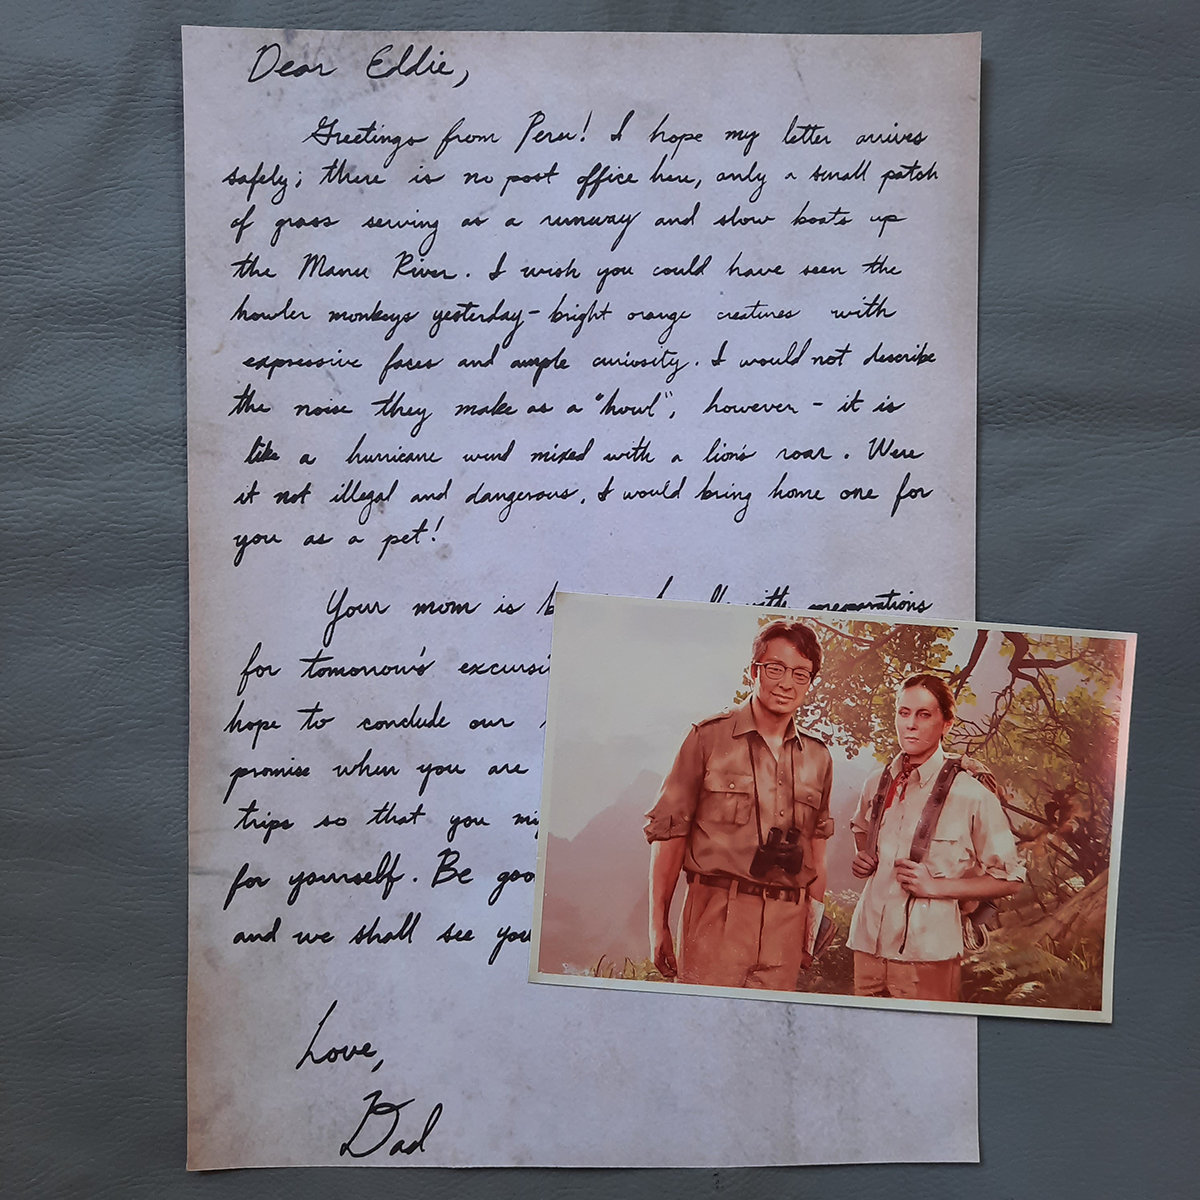 Dear Eddie,
Greetings from Peru! I hope my letter arrives
safely; there is no post office here, only a small patch
of grass serving as a runway and slow boats up
the Manu River. I wish you could have seen the
howler monkeys yesterday - bright orange creatures with
expressive faces and ample curiosity. I would not describe
the noise they make as a "howl", however - it is
like a hurricane wind mixed with a lion's roar. Were
it not illegal and dangerous, I would bring home one for
you as a pet!
Your mom is with preparations
for tomorrow's
hope to conclude our
promise when you are
trips so that you
for yourself. Be
and we shall see you
Love,
Dad